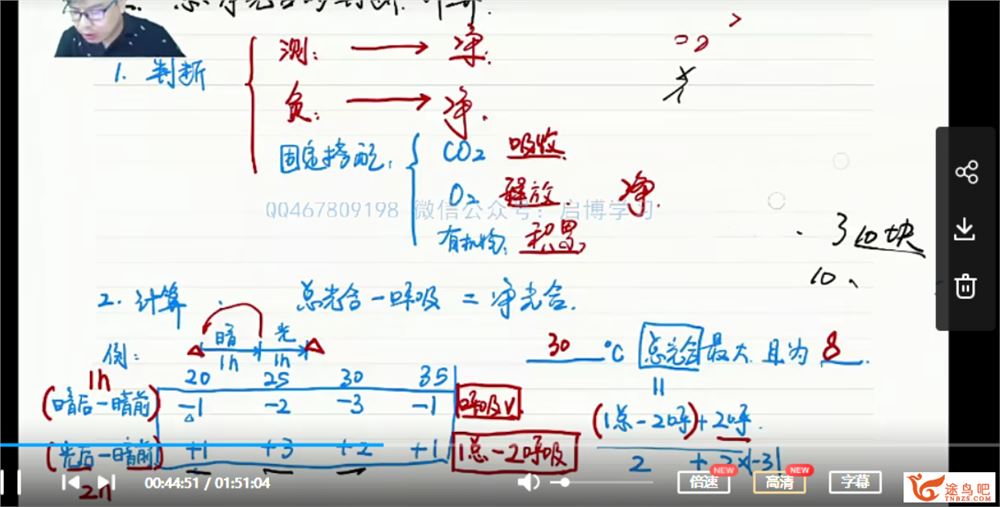 二. 总净光合的判断、计算.
1. 判断
测: → 净.
负: → 净.
固定搭配:
CO2 吸收.
O2 释放 净.
QQ467809198 微信公众号：启博学习
有机物: 积累
3 10块
10、
2. 计算. 总光合－呼吸 = 净光合.
暗 光
1h 1h
例:
30 ℃ 总光合 最大 且为 8.
1h 20 25 30 35
(暗后－暗前) -1 -2 -3 -1 呼吸V
(光后－暗前) +1 +3 +2 +1 1总－2呼吸
2h
(1总－2呼)+2呼.
2 + 2×|-3|
00:44:51 / 01:51:04
倍速 NEW
高清 NEW
字幕
途鸟吧
TNBZS.COM